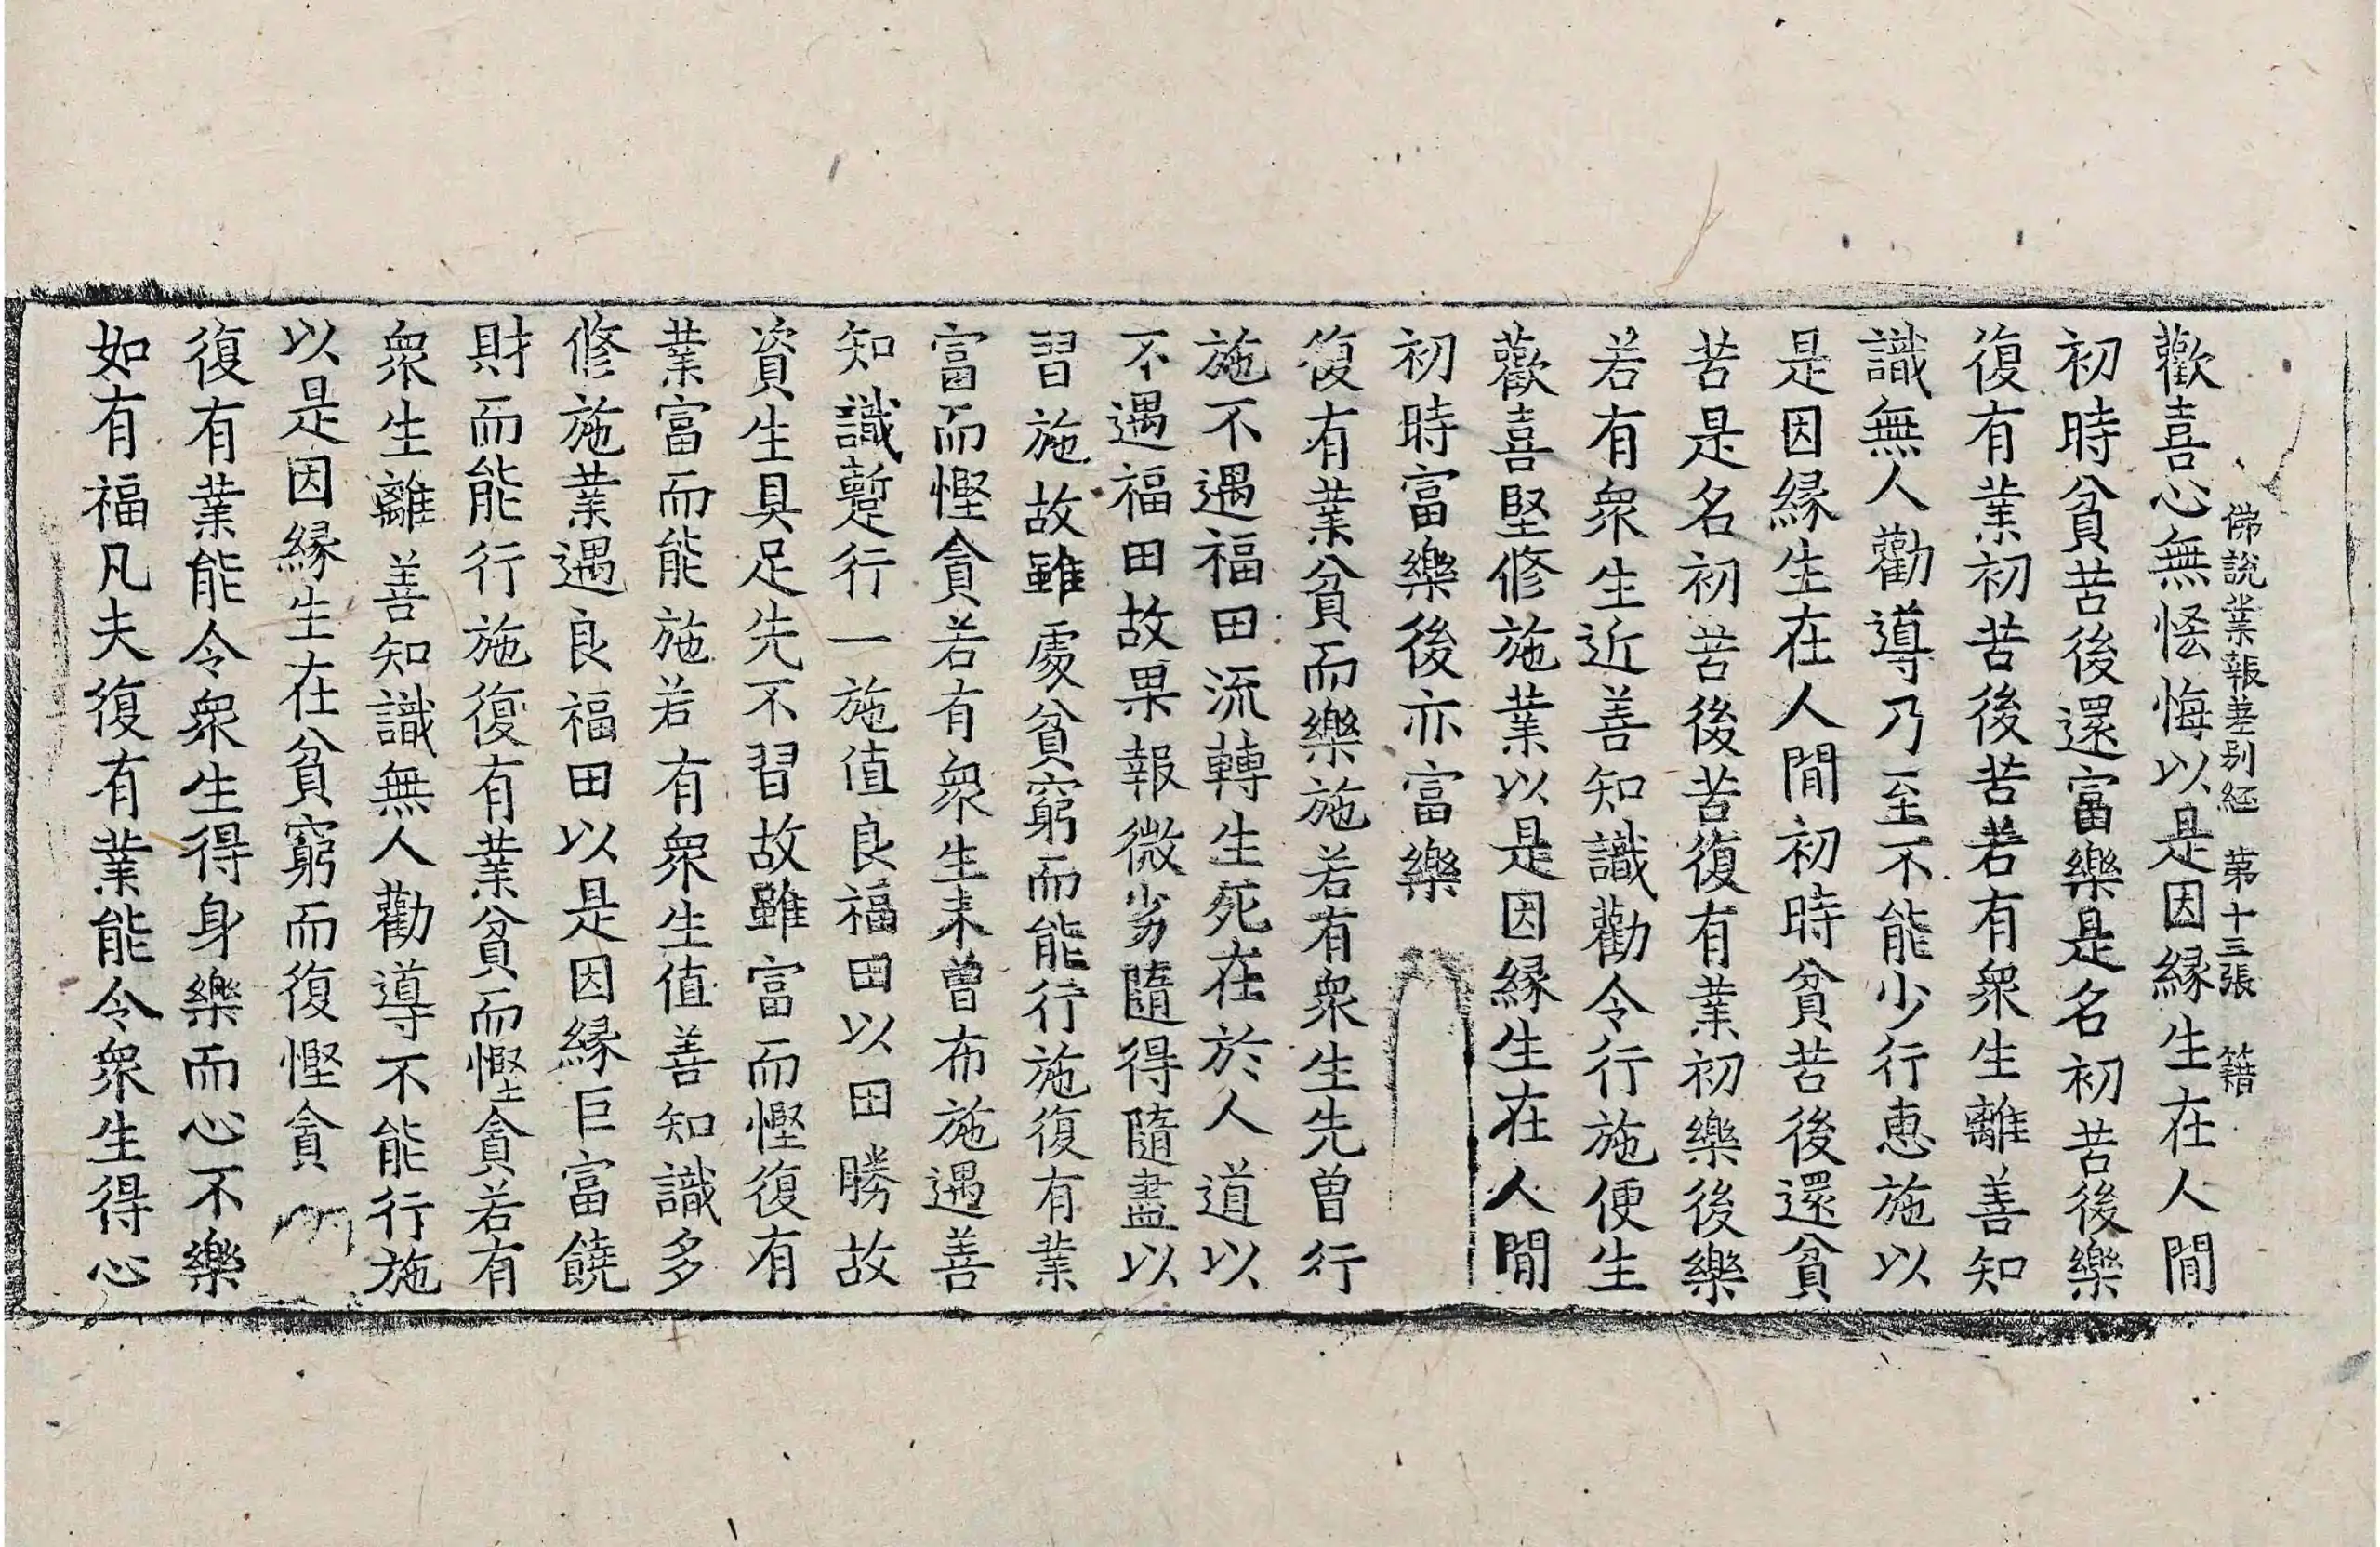 佛說業報差別經 第十三張 籍
歡喜心無恡悔以是因緣生在人間
初時貧苦後還富樂是名初苦後樂
復有業初苦後苦若有衆生離善知
識無人勸導乃至不能少行惠施以
是因緣生在人間初時貧苦後還貧
苦是名初苦後苦復有業初樂後樂
若有衆生近善知識勸令行施便生
歡喜堅修施業以是因緣生在人間
初時富樂後亦富樂
復有業貧而樂施若有衆生先曾行
施不遇福田流轉生死在於人道以
不遇福田故果報微劣隨得隨盡以
習施故雖處貧窮而能行施復有業
富而慳貪若有衆生未曾布施遇善
知識蹔行一施值良福田以田勝故
資生具足先不習故雖富而慳復有
業富而能施若有衆生值善知識多
修施業遇良福田以是因緣巨富饒
財而能行施復有業貧而慳貪若有
衆生離善知識無人勸導不能行施
以是因緣生在貧窮而復慳貪
復有業能令衆生得身樂而心不樂
如有福凡夫復有業能令衆生得心